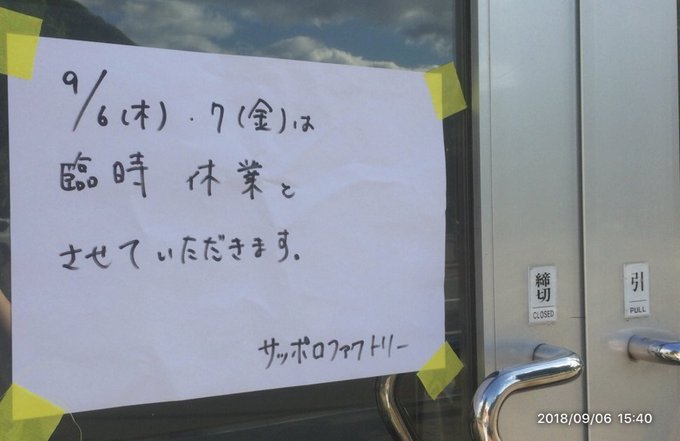 9/6(木)・7(金)は
臨時休業と
させていただきます。
サッポロファクトリー
締切
CLOSED
引
PULL
2018/09/06 15:40